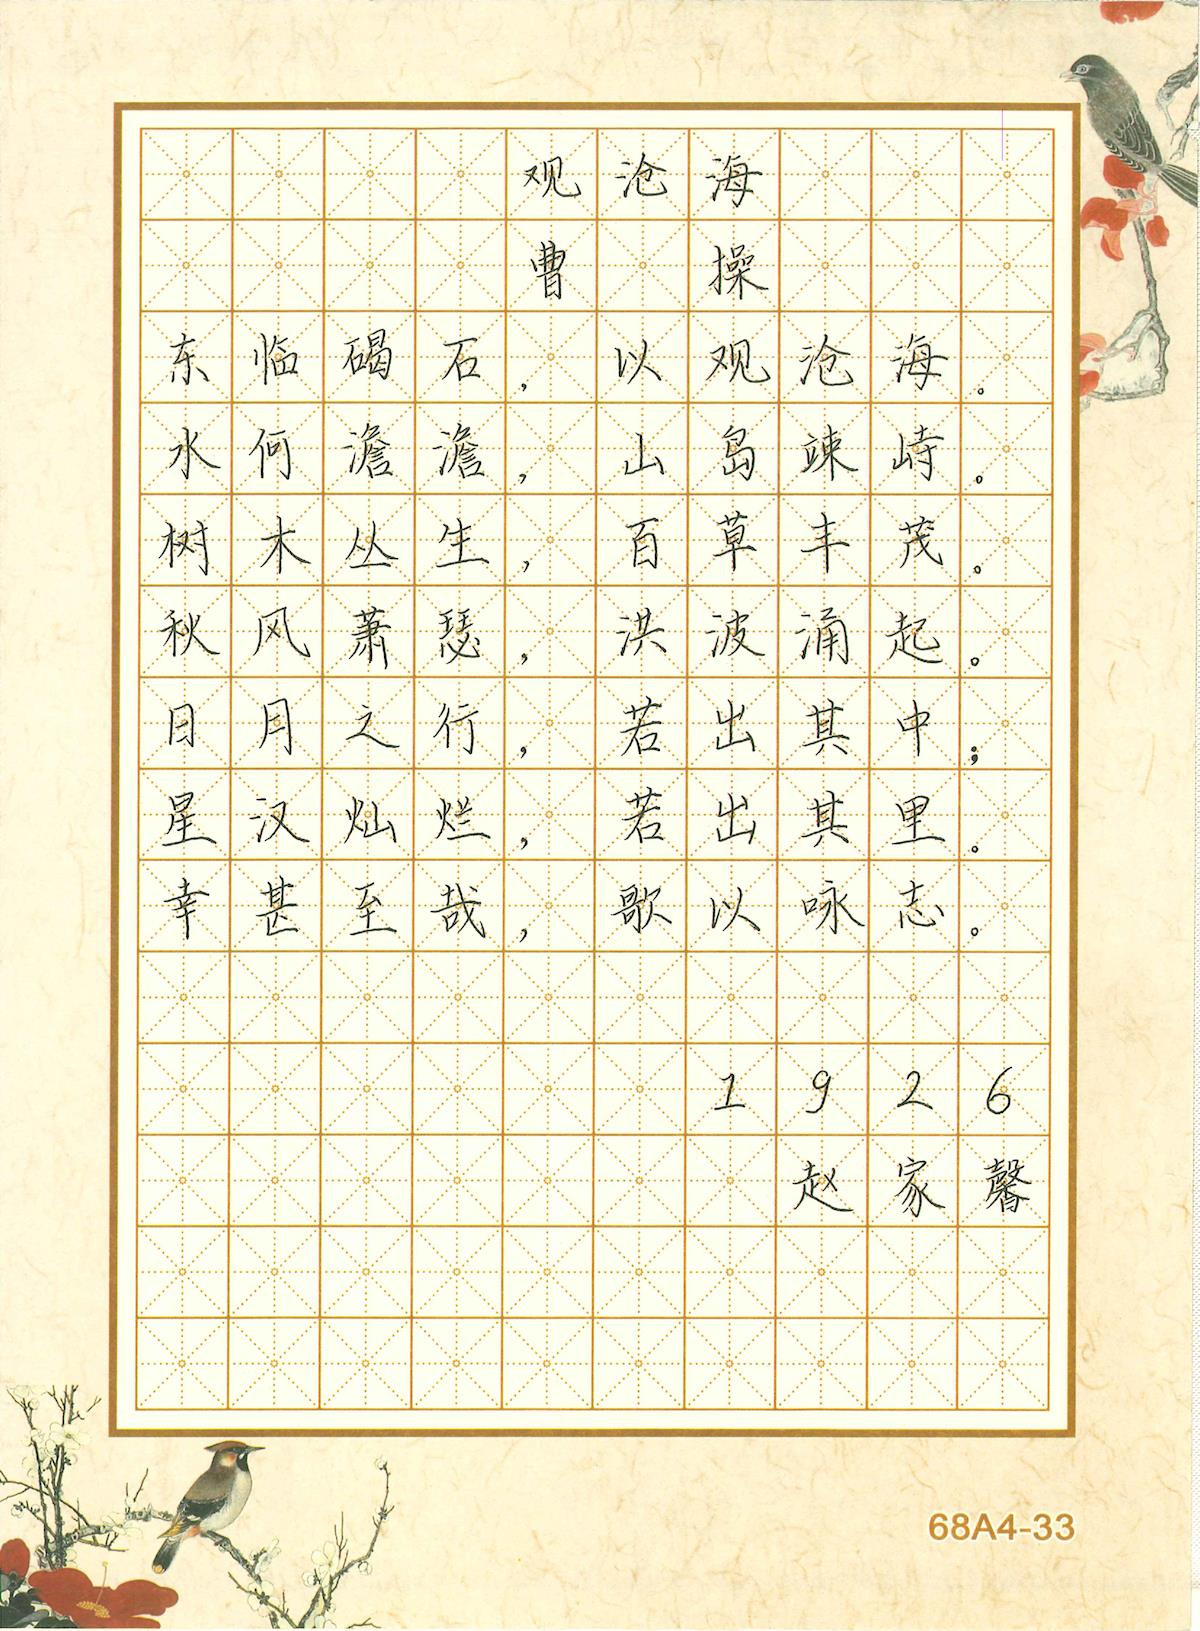 观沧海
曹操
东临碣石，以观沧海。
水何澹澹，山岛竦峙。
树木丛生，百草丰茂。
秋风萧瑟，洪波涌起。
日月之行，若出其中；
星汉灿烂，若出其里。
幸甚至哉，歌以咏志。
1926
赵家馨
68A4-33